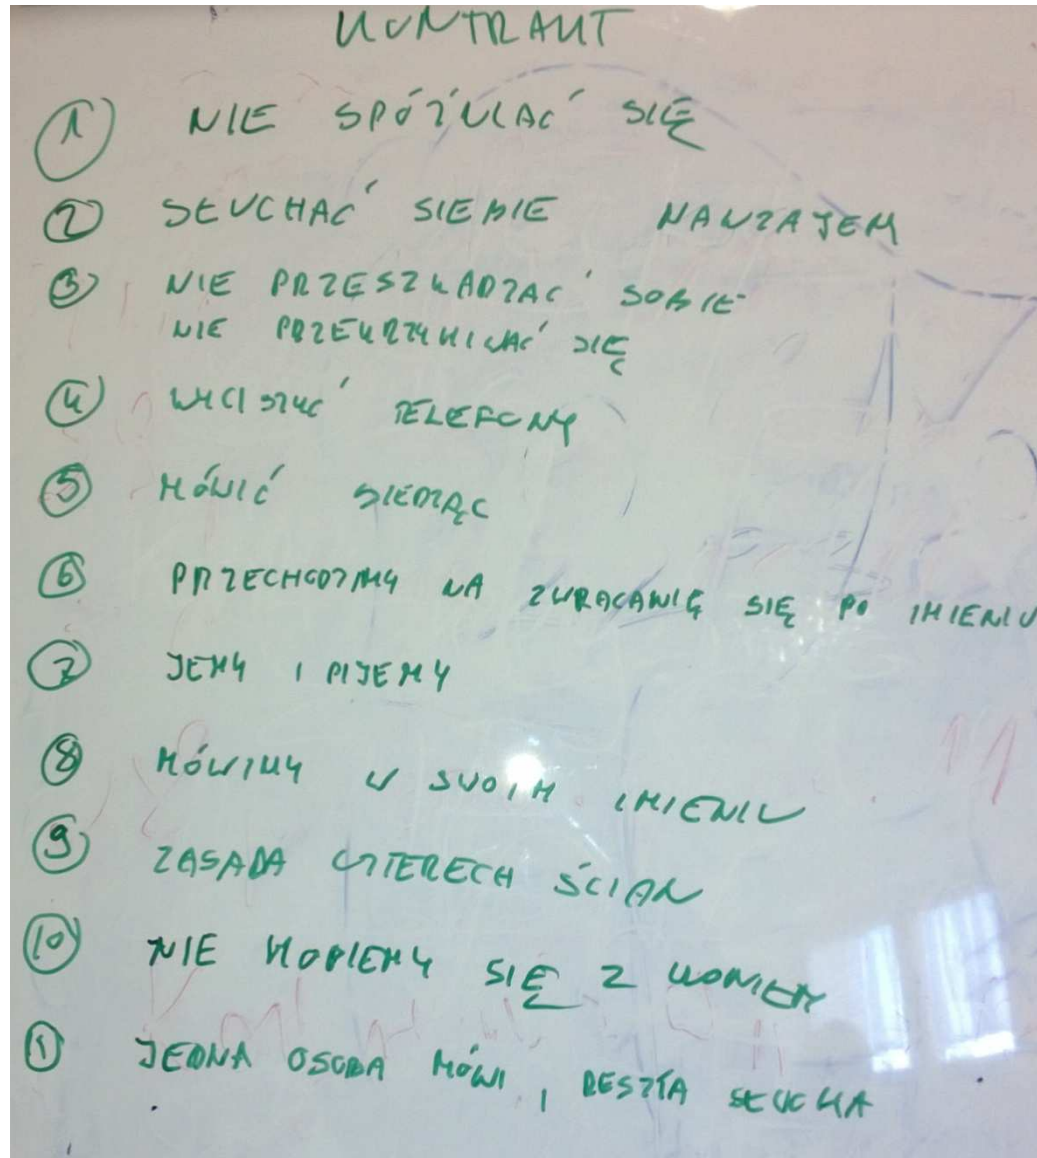 KONTRAKT
1 NIE SPÓŹNIAĆ SIĘ
2 SŁUCHAĆ SIEBIE NAWZAJEM
3 NIE PRZESZKADZAĆ SOBIE
NIE PRZEKRZYKIWAĆ SIĘ
4 WYCISZYĆ TELEFONY
5 MÓWIĆ SIEDZĄC
6 PRZECHODZIMY NA ZWRACANIE SIĘ PO IMIENIU
7 JEMY I PIJEMY
8 MÓWIMY W SWOIM IMIENIU
9 ZASADA CZTERECH ŚCIAN
10 NIE KOPIEMY SIĘ Z KONIEM
11 JEDNA OSOBA MÓWI, RESZTA SŁUCHA